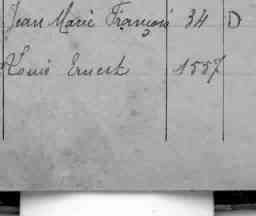 Jean Marie François 34 D
Louis Ernest 1557